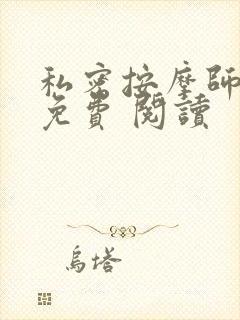 私密按摩師
免費 閱讀
烏塔